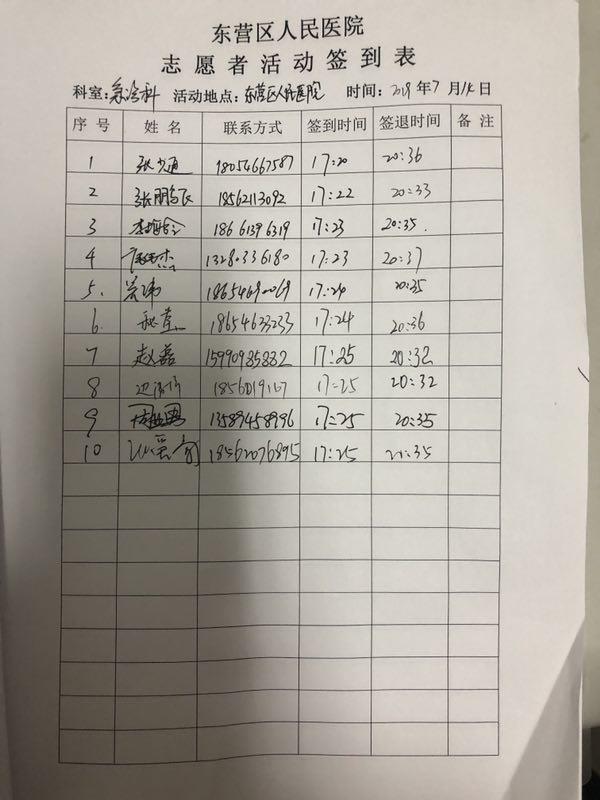 东营区人民医院
志愿者活动签到表
科室:急诊科 活动地点:东营区人民医院 时间:2019年7月14日
序号 姓名 联系方式 签到时间 签退时间 备注
1 张少通 18054667587 17:20 20:36
2 张鹏飞 18562113092 17:22 20:33
3 18661396319 17:23 20:35
4 13280336180 17:23 20:37
5. 18654690069 17:24 20:35
6. 18654633233 17:24 20:36
7 赵磊 15990985882 17:25 20:32
8 17:25 20:32
9 13589458996 17:25 20:35
10 18562076895 17:25 20:35